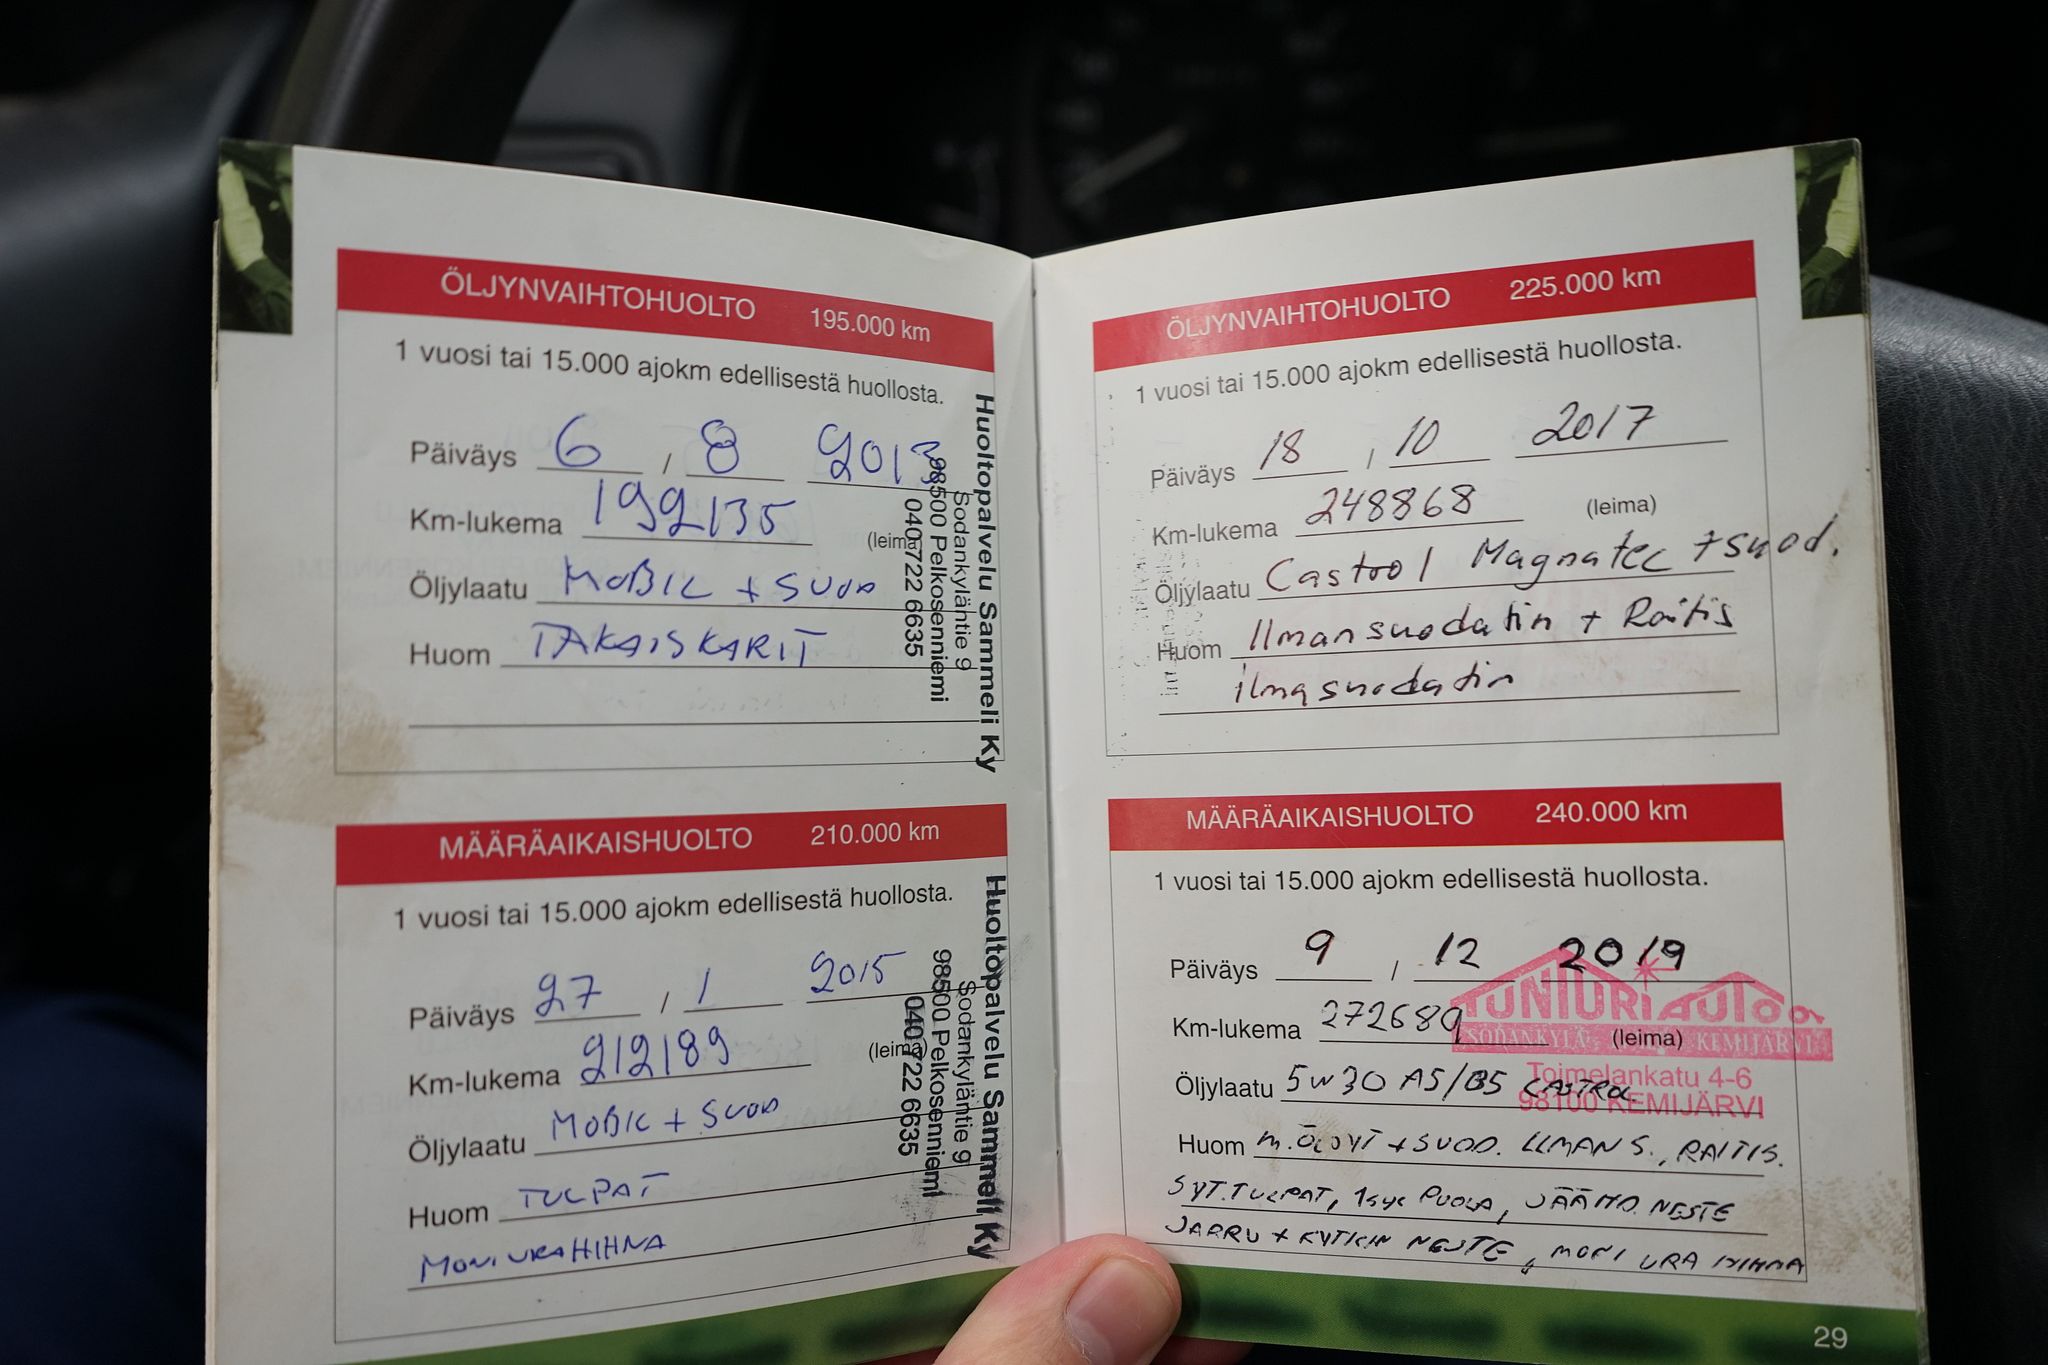 ÖLJYNVAIHTOHUOLTO 195.000 km
1 vuosi tai 15.000 ajokm edellisestä huollosta.
Päiväys 6 / 8 2013
Km-lukema 199135
(leima)
Öljylaatu MOBIL + SUOD
Huom TAKAISKARIT
Huoltopalvelu Sammeli Ky
Sodankyläntie 9
98500 Pelkosenniemi
040 722 6635
MÄÄRÄAIKAISHUOLTO 210.000 km
1 vuosi tai 15.000 ajokm edellisestä huollosta.
Päiväys 27 / 1 2015
Km-lukema 212189
(leima)
Öljylaatu MOBIL + SUOD
Huom TULPAT
MONIURAHIHNA
Huoltopalvelu Sammeli Ky
Sodankyläntie 9
98500 Pelkosenniemi
040 722 6635
ÖLJYNVAIHTOHUOLTO 225.000 km
1 vuosi tai 15.000 ajokm edellisestä huollosta.
Päiväys 18 / 10 2017
Km-lukema 248868 (leima)
Öljylaatu Castrol Magnatec + suod.
Huom Ilmansuodatin + Raitis
ilmasuodatin
MÄÄRÄAIKAISHUOLTO 240.000 km
1 vuosi tai 15.000 ajokm edellisestä huollosta.
Päiväys 9 / 12 2019
TUNTURIAUTO OY
Km-lukema 272689 (leima)
SODANKYLÄ KEMIJÄRVI
Toimelankatu 4-6
Öljylaatu 5W30 A5/B5 CASTROL
98100 KEMIJÄRVI
Huom M.ÖLJYT + SUOD. ILMANS., RAITIS.
SYT.TULPAT, 1kpl PUOLA, JÄÄHD. NESTE
JARRU + KYTKIN NESTE, MONI URA HIHNA
29